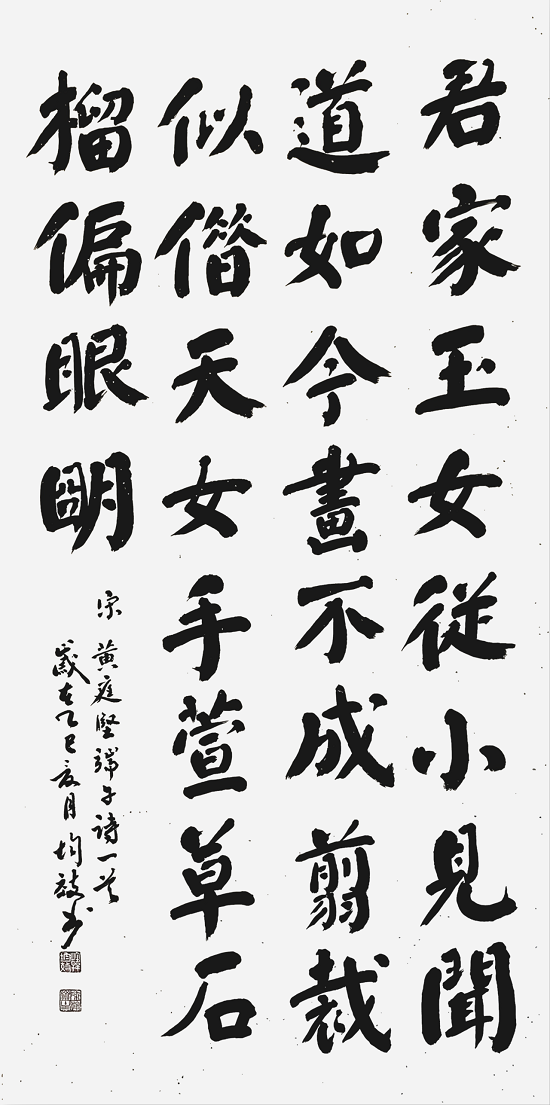 君家玉女從小見聞
道如今畫不成翦裁
似借天女手萱草石
榴偏眼明
宋 黄庭堅端午詩一首
歲在乙巳夏月均书